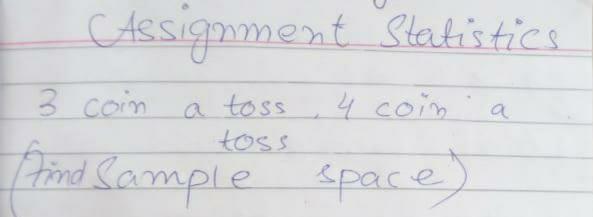 Assignment Statistics
3 coin a toss, 4 coin a
toss
(find Sample space)